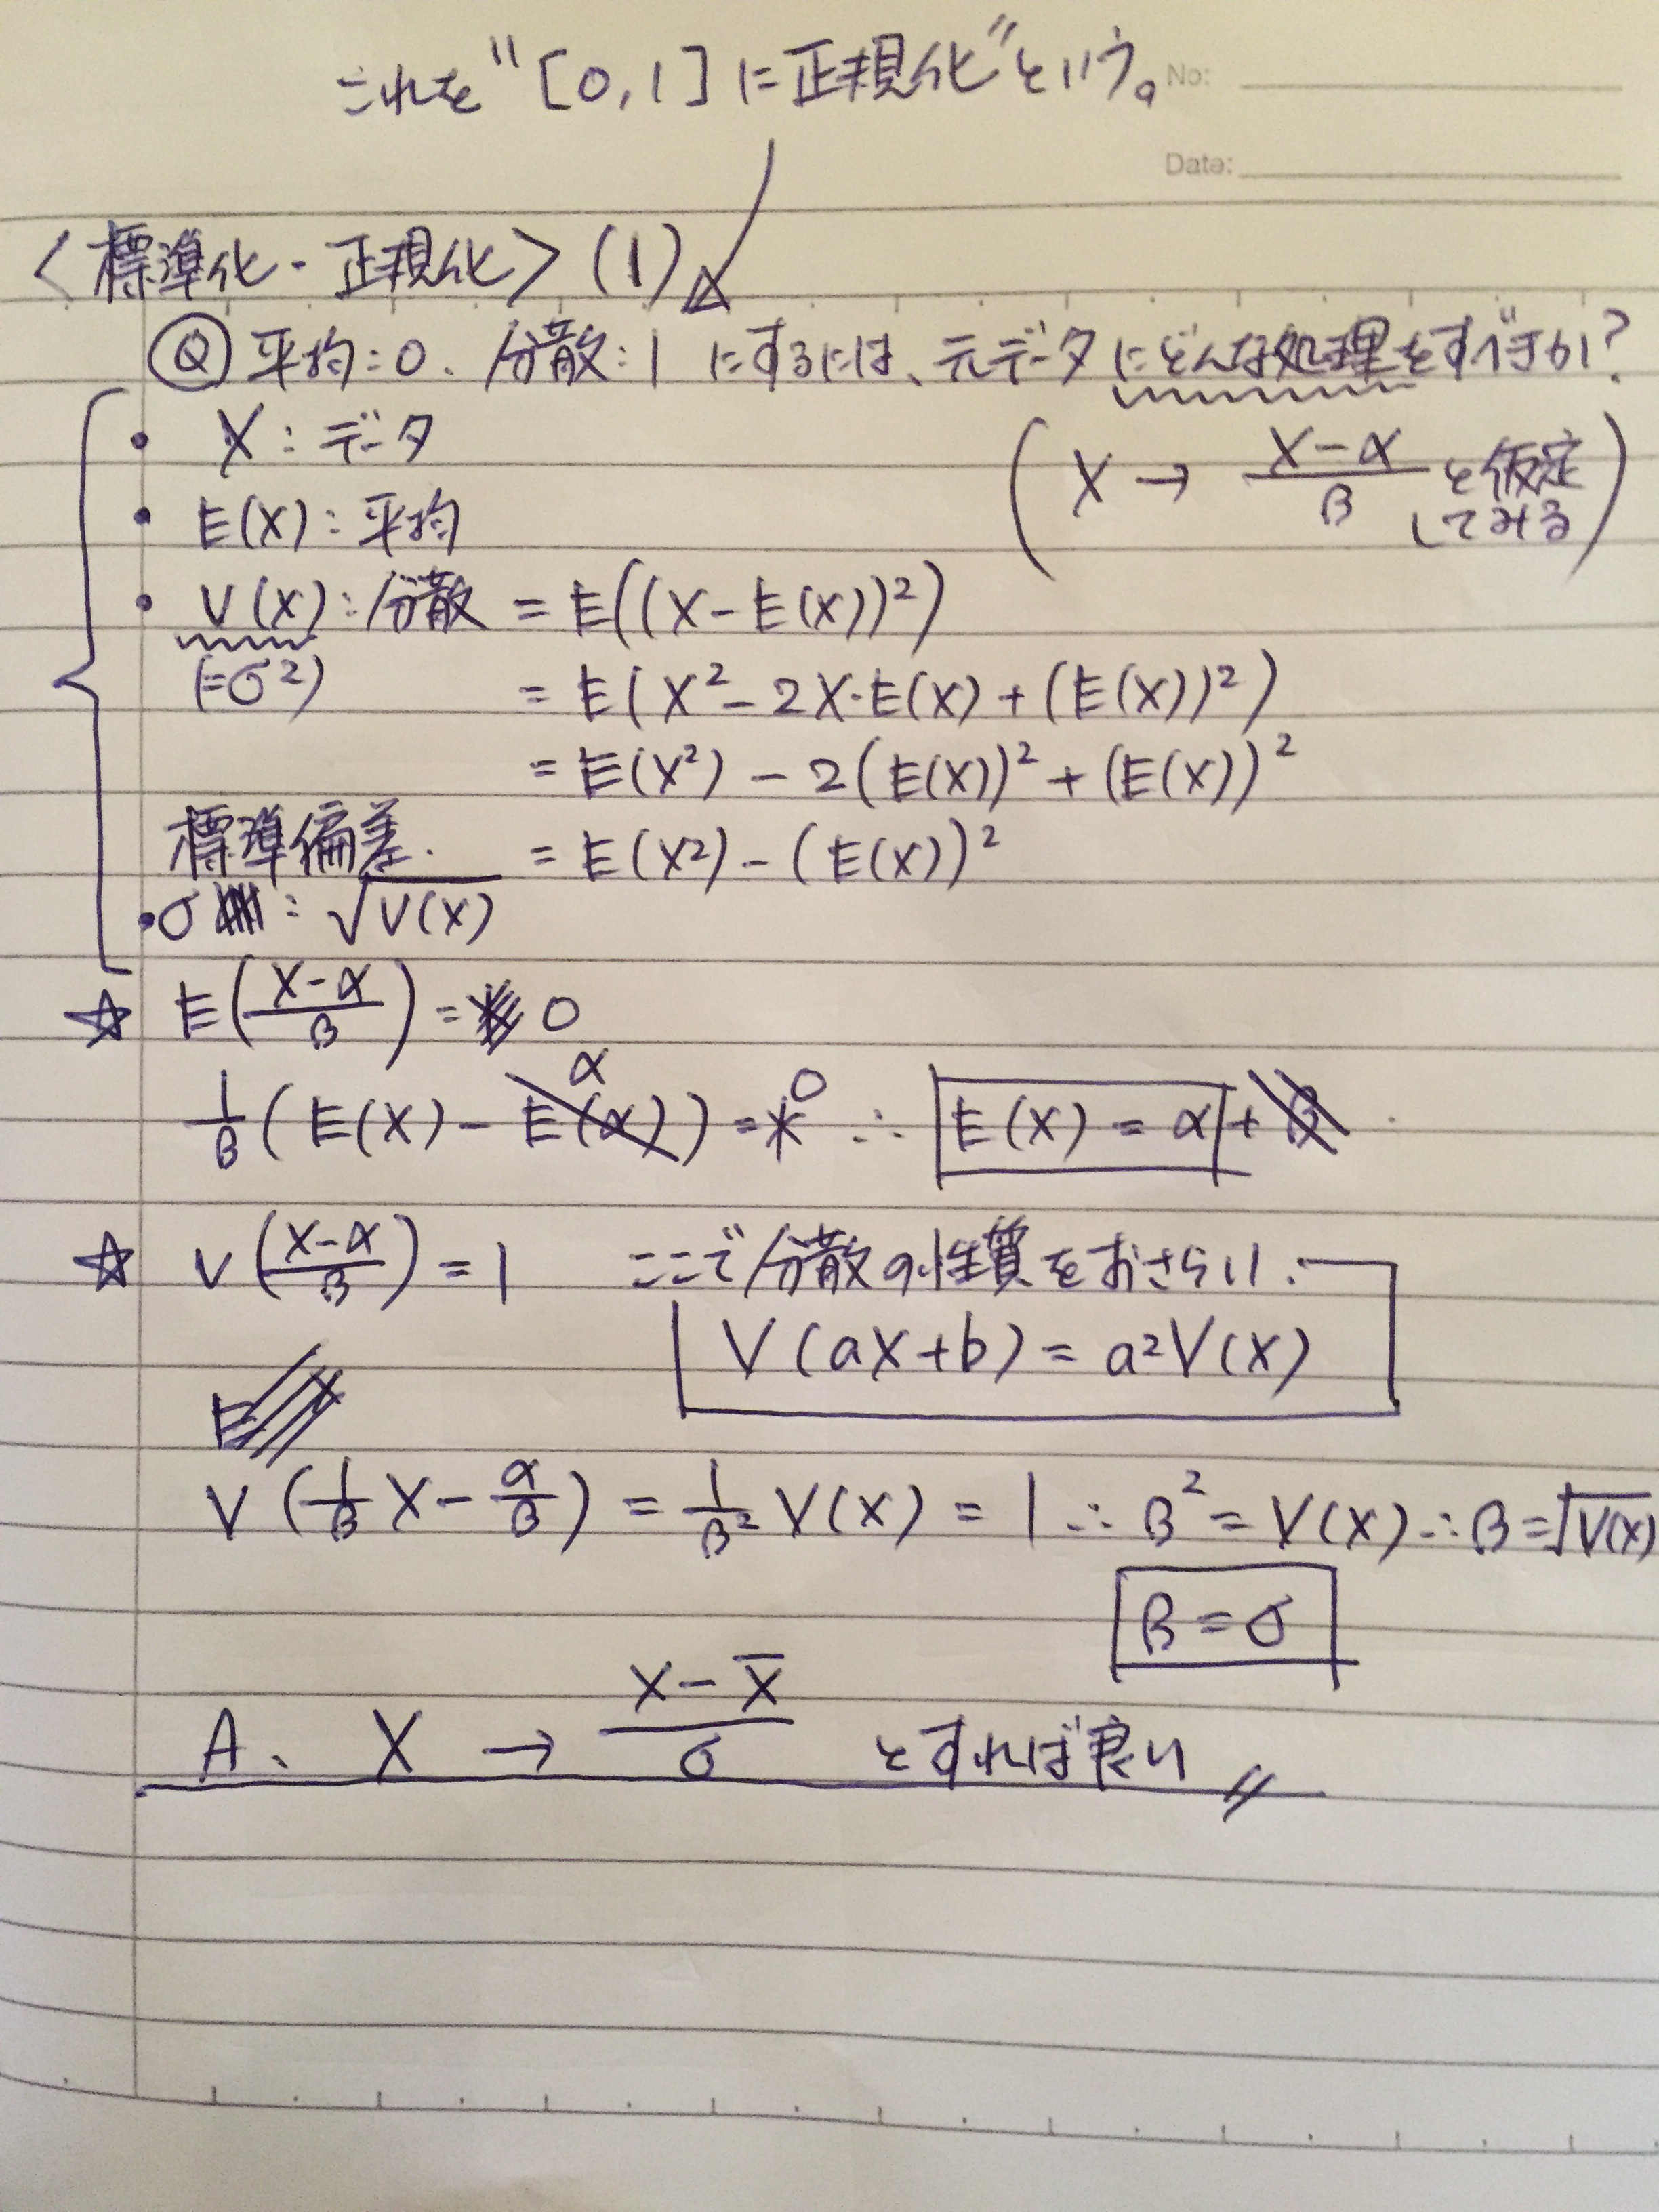 これを"[0,1]に正規化"という。
No:
Date:
<標準化・正規化>(1)
Q 平均:0、分散:1 にするには、元データにどんな処理をすべきか?
・ X:データ
(X → (X-α)/β と仮定してみる)
・ E(X):平均
・ V(X):分散 = E((X-E(X))²)
(=σ²) = E(X²-2X・E(X)+(E(X))²)
= E(X²)-2(E(X))²+(E(X))²
標準偏差. = E(X²)-(E(X))²
・σ : √V(X)
☆ E((X-α)/β) = 0
1/β(E(X)-α) = 0 ∴ E(X) = α
☆ V((X-α)/β) = 1 ここで分散の性質をおさらい.
V(aX+b) = a²V(X)
V(1/β X - α/β) = 1/β² V(X) = 1 ∴ β² = V(X) ∴ β = √V(X)
β = σ
A、 X → (X-X̄)/σ とすれば良い〃